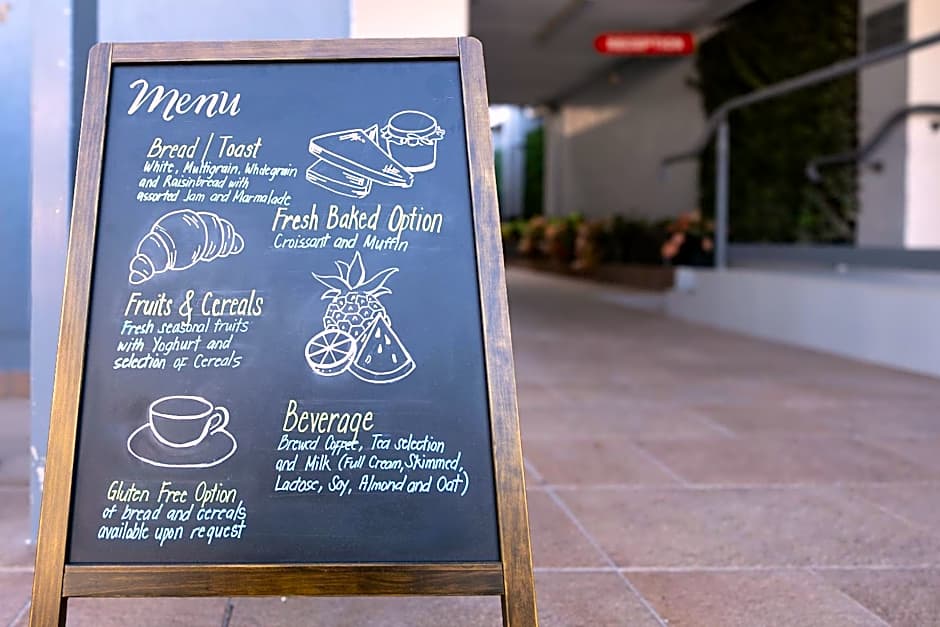 RECEPTION
Menu
Bread / Toast
White, Multigrain, Wholegrain
and Raisinbread with
assorted Jam and Marmalade
Fresh Baked Option
Croissant and Muffin
Fruits & Cereals
Fresh seasonal fruits
with Yoghurt and
selection of Cereals
Beverage
Brewed Coffee, Tea selection
and Milk (Full Cream, Skimmed,
Lactose, Soy, Almond and Oat)
Gluten Free Option
of bread and cereals
available upon request